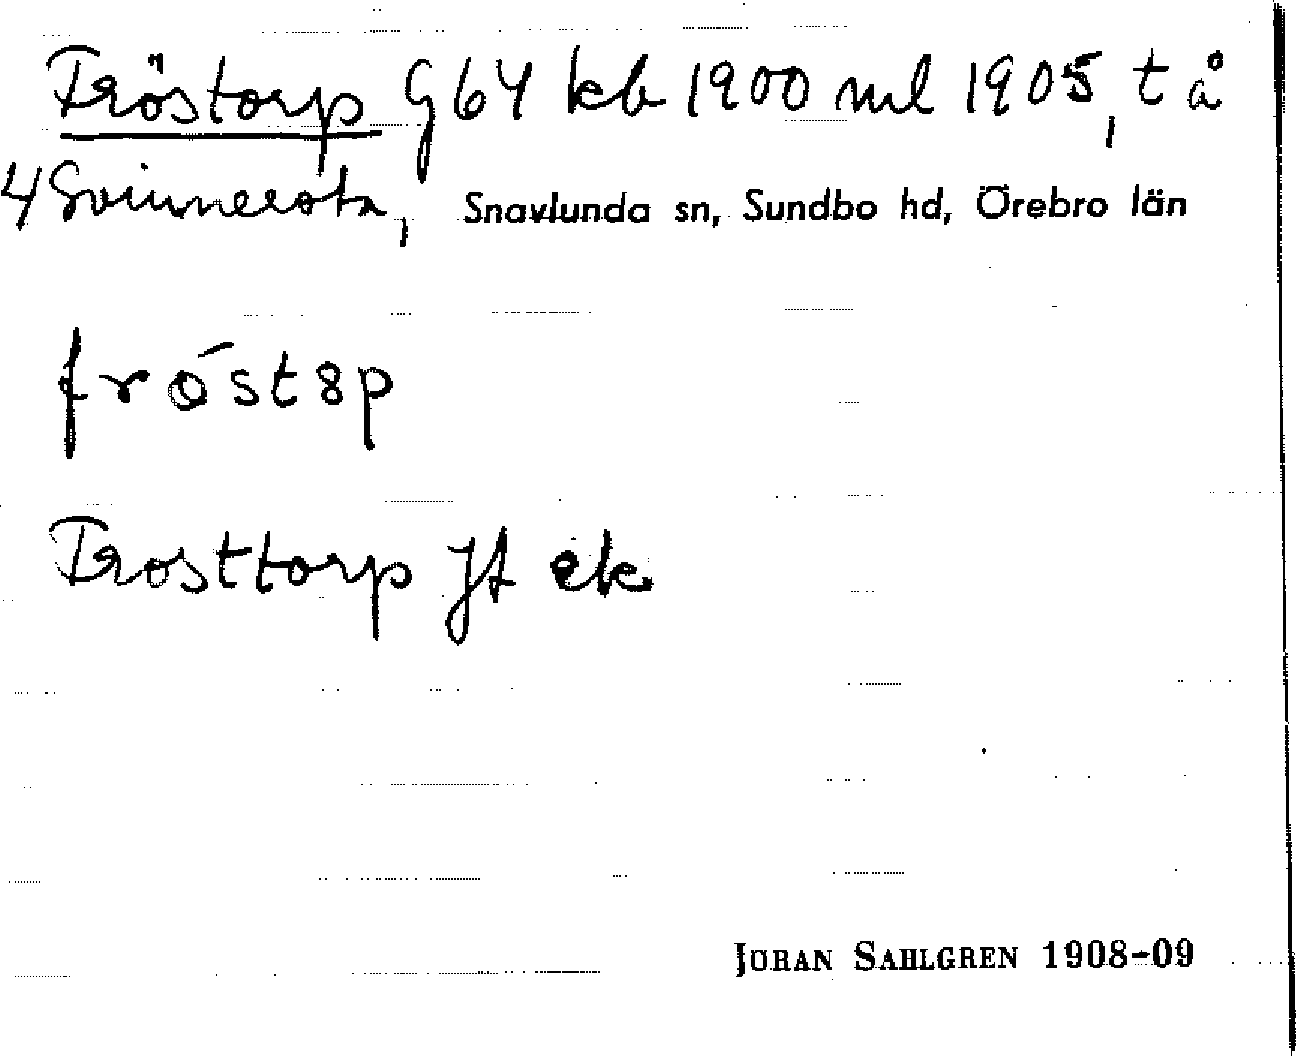 Fröstorp G64 kb 1900 ml 1905, t å
4 Svinnersta, Snavlunda sn, Sundbo hd, Örebro län
fröst8p
Frosttorp Jt ek
JÖRAN SAHLGREN 1908-09